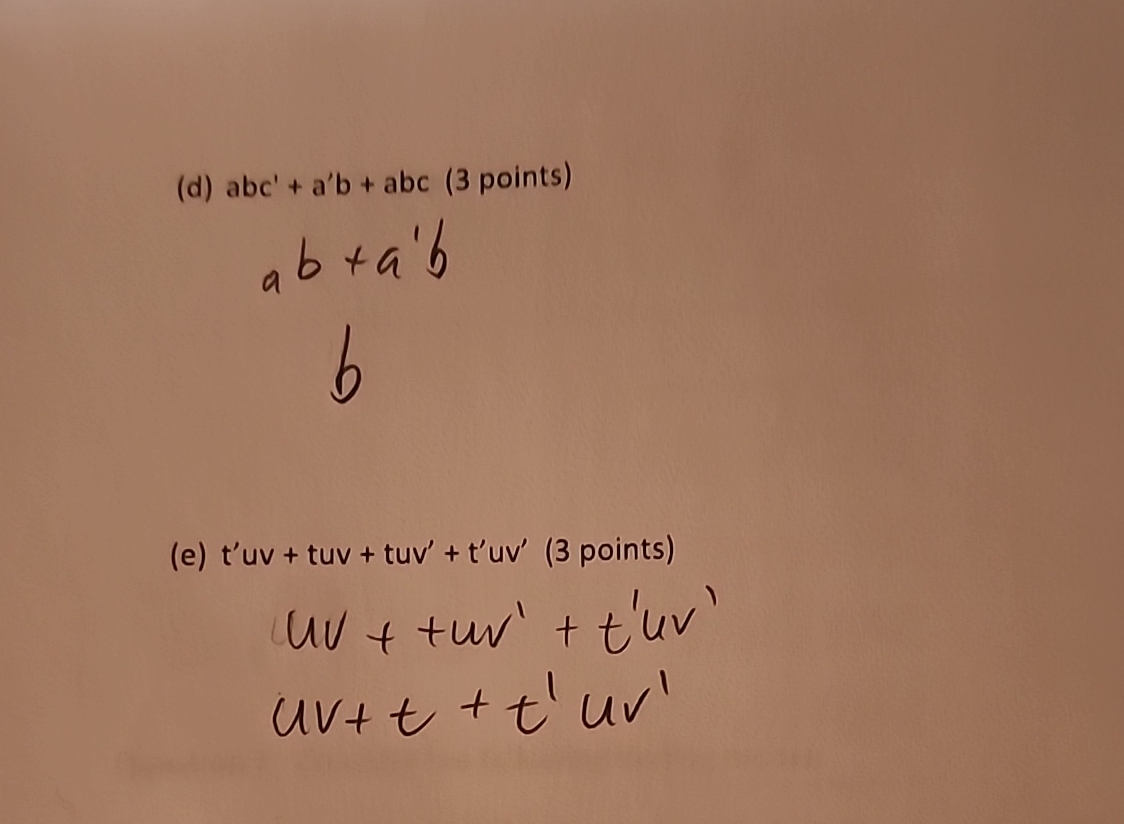 (d) abc' + a′b + abc (3 points)
ab + a'b
b
(e) t′uv + tuv + tuv′ + t′uv′ (3 points)
uv + tuv' + t'uv'
uv + t + t'uv'